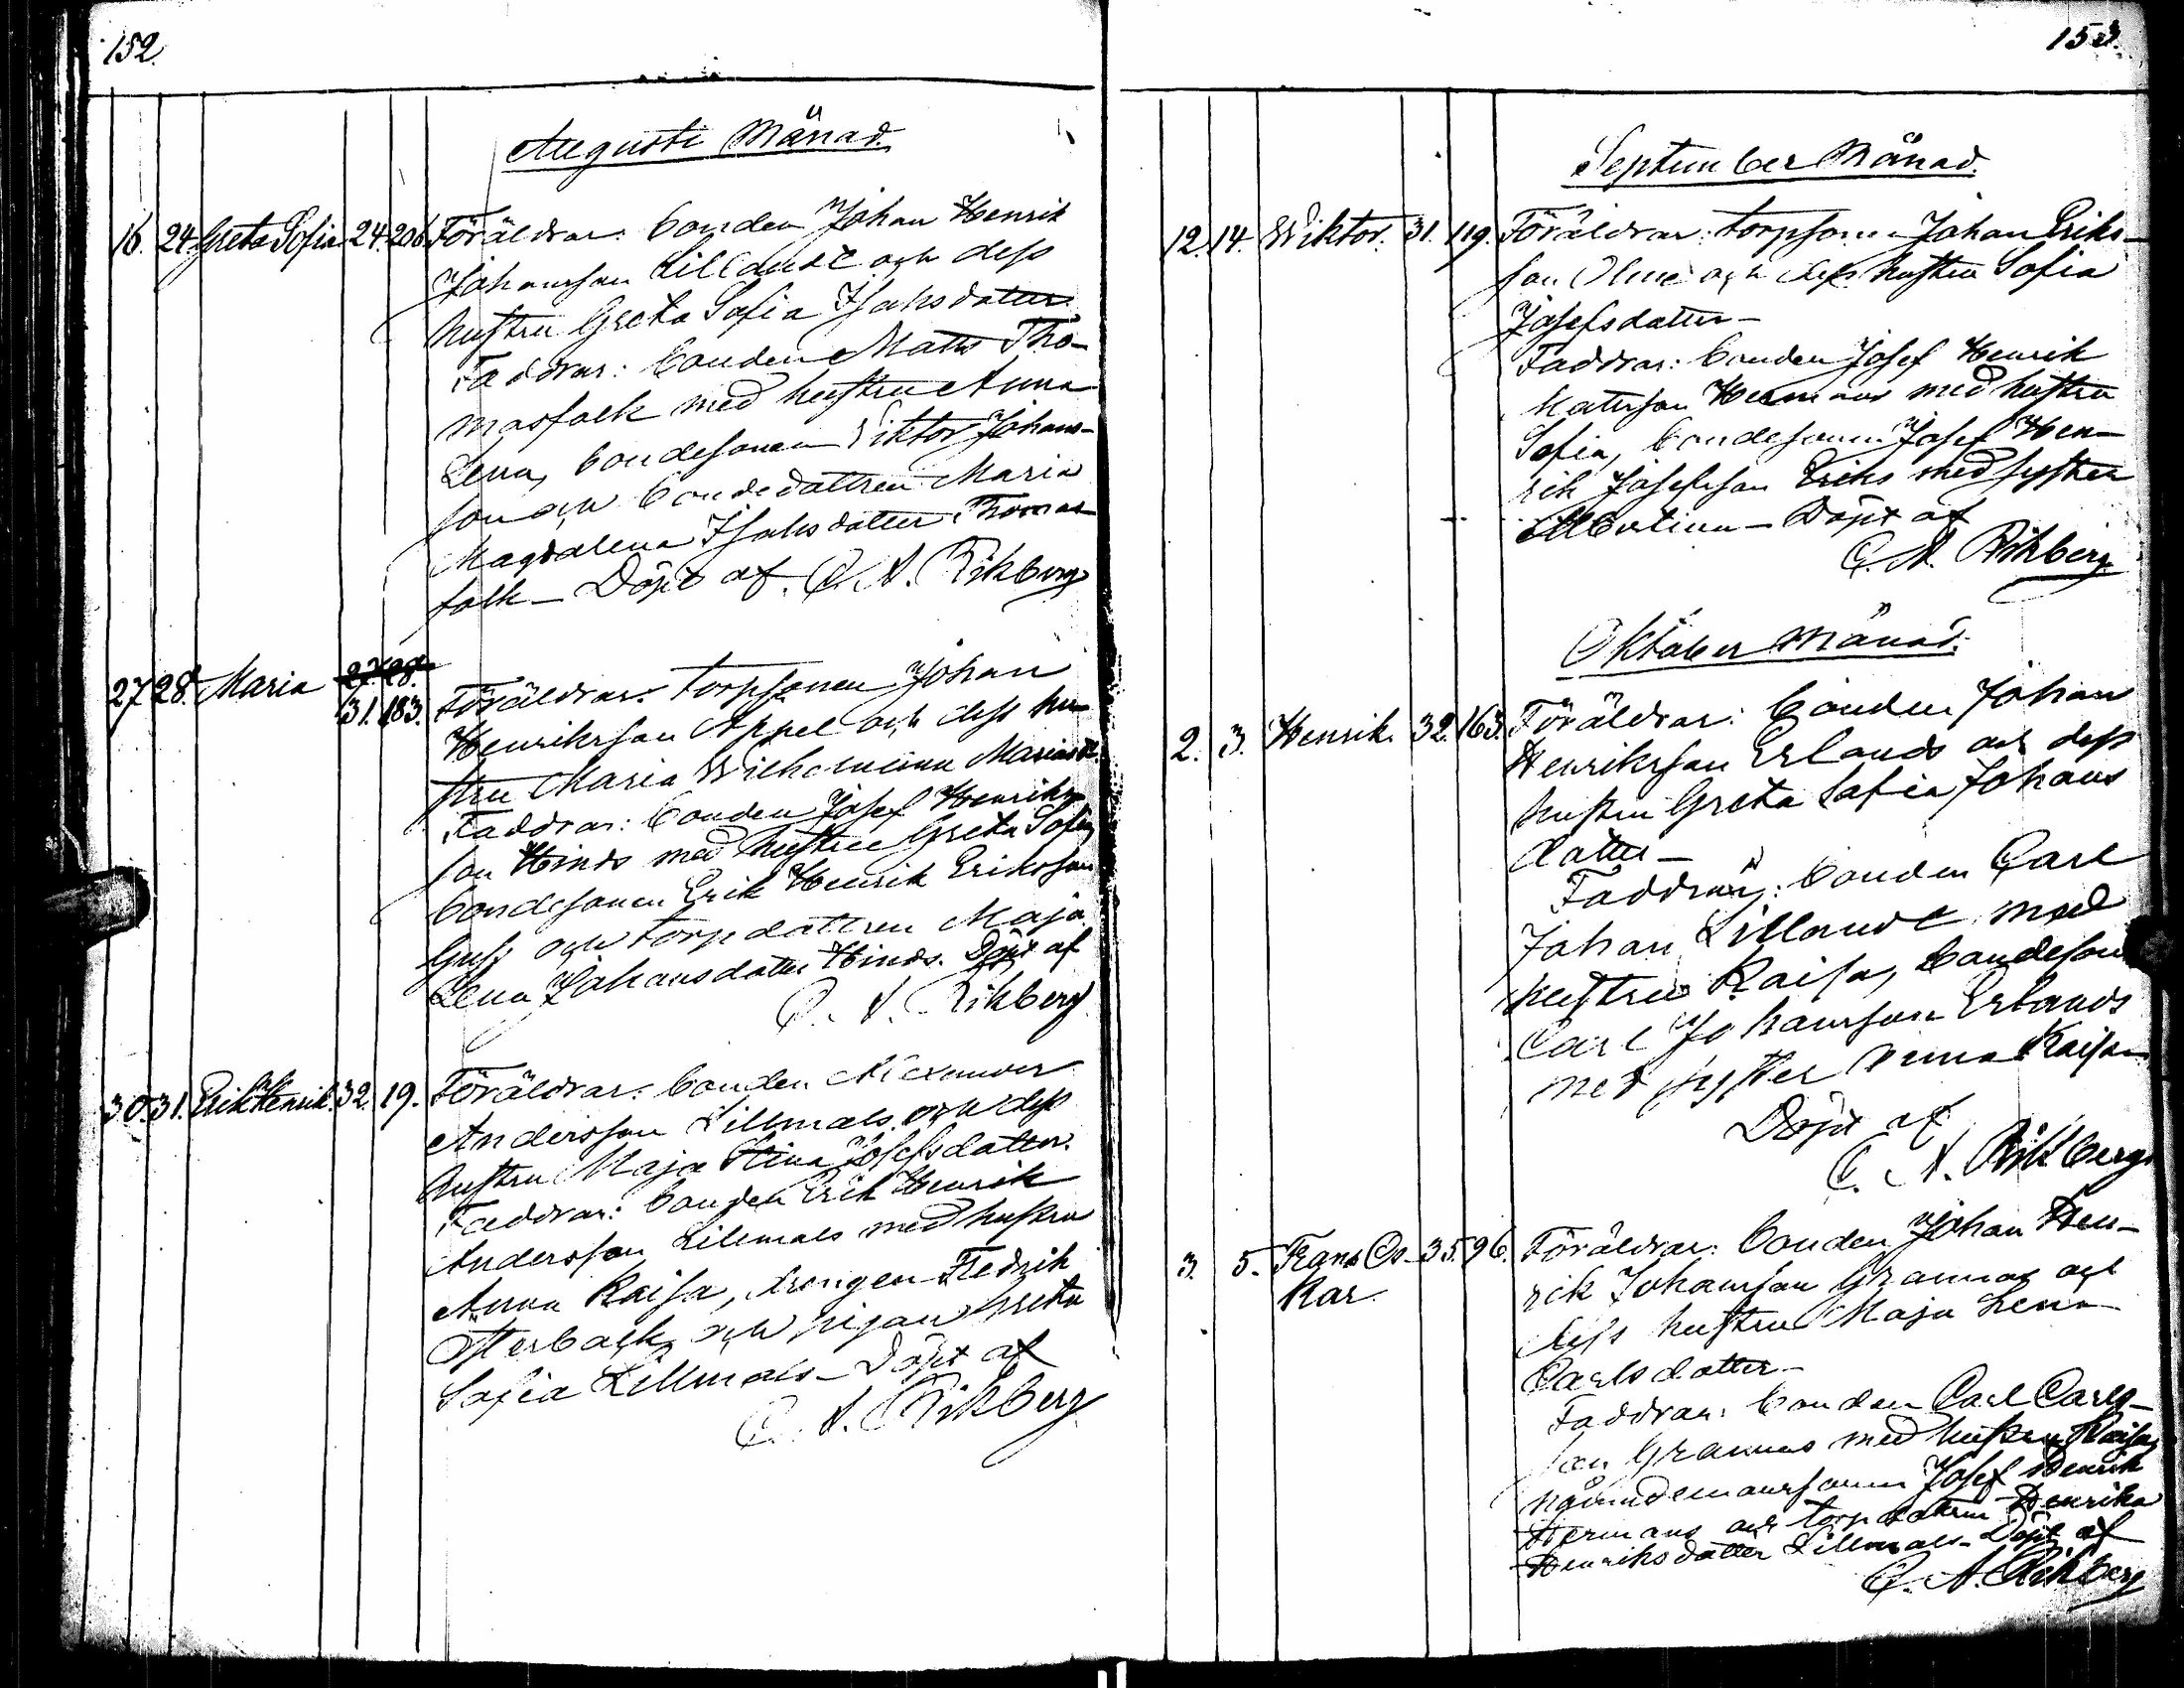 152.
Augusti Månad.
16. 24. Greta Sofia 24. 206. Föräldrar: bonden Johan Henrik
Johansson Lillqvist och dess
hustru Greta Sofia Isaksdatter
Faddrar: bonden Matts Tho-
masfolk med hustru Anna
Lena, bondesonen Viktor Johans-
son och bondedattren Maria
Magdalena Isaksdatter Thomas-
folk — Döpt af C. A. Rikberg
27 28. Maria 27. 28.
31. 183. Föräldrar: torpsonen Johan
Henriksson Appel och dess hu-
stru Maria Wilhelmina Mariasdr.
Faddrar: bonden Josef Henriks-
son Hinds med hustru Greta Sofia,
bondesonen Erik Henrik Eriksson
och torpdattren Maja
Lena Johansdatter Hinds. Döpt af
C. A. Rikberg
30. 31. Erik Henrik. 32. 19. Föräldrar: bonden Alexander
Andersson Lillmåls och dess
hustru Maja Stina Josefsdatter.
Faddrar: bonden Erik Henrik
Andersson Lillmåls med hustru
Anna Kaisa, drengen Fredrik
Österback och pigan Greta
Sofia Lillmåls — Döpt af
C. A. Rikberg
153.
September Månad.
12. 14. Wiktor. 31. 119. Föräldrar: torpsonen Johan Eriks-
son och dess hustru Sofia
Josefsdatter —
Faddrar: bonden Josef Henrik
Matsson Hermans med hustru
Sofia, bondesonen Josef Hen-
rik Josefsson Eriks med syster
Albertina — Döpt af
C. A. Rikberg
Oktober Månad.
2. 3. Henrik. 32. 163. Föräldrar: bonden Johan
Henriksson Erlands och dess
hustru Greta Sofia Johans
datter —
Faddrar: bonden Carl
Johan Lillqvist med
hustru Kaisa, bondeson
Carl Johansson Erlands
med syster Anna Kaisa
Döpt af
C. A. Rikberg
3. 5. Frans Os- 35. 96. Föräldrar: bonden Johan Hen-
kar. rik Johansson Grannas och
dess hustru Maja Lena
Carlsdatter —
Faddrar: bonden Carl Carls-
son Grannas med hustru Kaisa,
nämndemanssonen Josef Henrik
Hermans och torpdattren Henrika
Henriksdatter Lillmåls — Döpt af
C. A. Rikberg